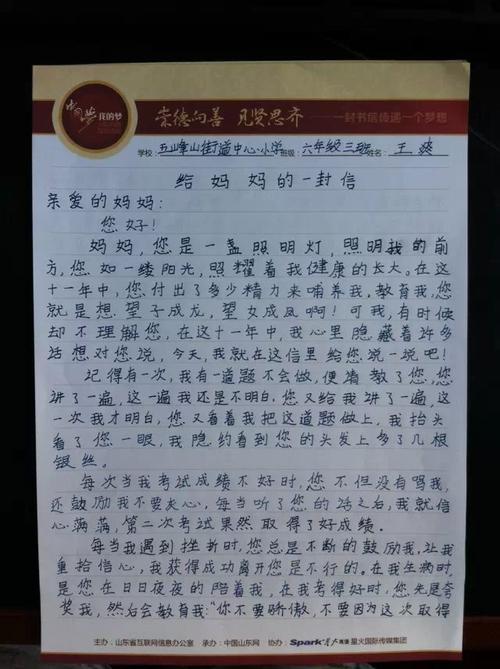 中国梦 我的梦
崇德向善 见贤思齐 一封书信传递一个梦想
学校: 五峰山街道中心小学 班级: 六年级三班 姓名: 王爽
给妈妈的一封信
亲爱的妈妈:
您好!
妈妈,您是一盏照明灯,照明我的前
方,您如一缕阳光,照耀着我健康的长大。在这
十一年中,您付出了多少精力来哺养我,教育我,您
就是想望子成龙,望女成凤啊!可我,有时候
却不理解您,在这十一年中,我心里隐藏着许多
话想对您说,今天,我就在这信里给您说一说吧!
记得有一次,我有一道题不会做,便请教了您,您
讲了一遍,这一遍我还是不明白,您又给我讲了一遍,这
一次我才明白,您又看着我把这道题做上,我抬头
看了您一眼,我隐约看到您的头发上多了几根
银丝。
每次当我考试成绩不好时,您不但没有吗我,
还鼓励我不要灰心,每当听了您的话之后,我就信
心满满,第二次考试果然取得了好成绩。
每当我遇到挫折时,您总是不断的鼓励我,让我
重拾信心,我获得成功离开您是不行的。在我生病时
是您在日日夜夜的陪着我,在我考得好时,您先是夸
奖我,然后会教育我:“你不要骄傲,不要因为这次取得
主办:山东省互联网信息办公室 承办:中国山东网 协办:Spark星火 星火国际传媒集团